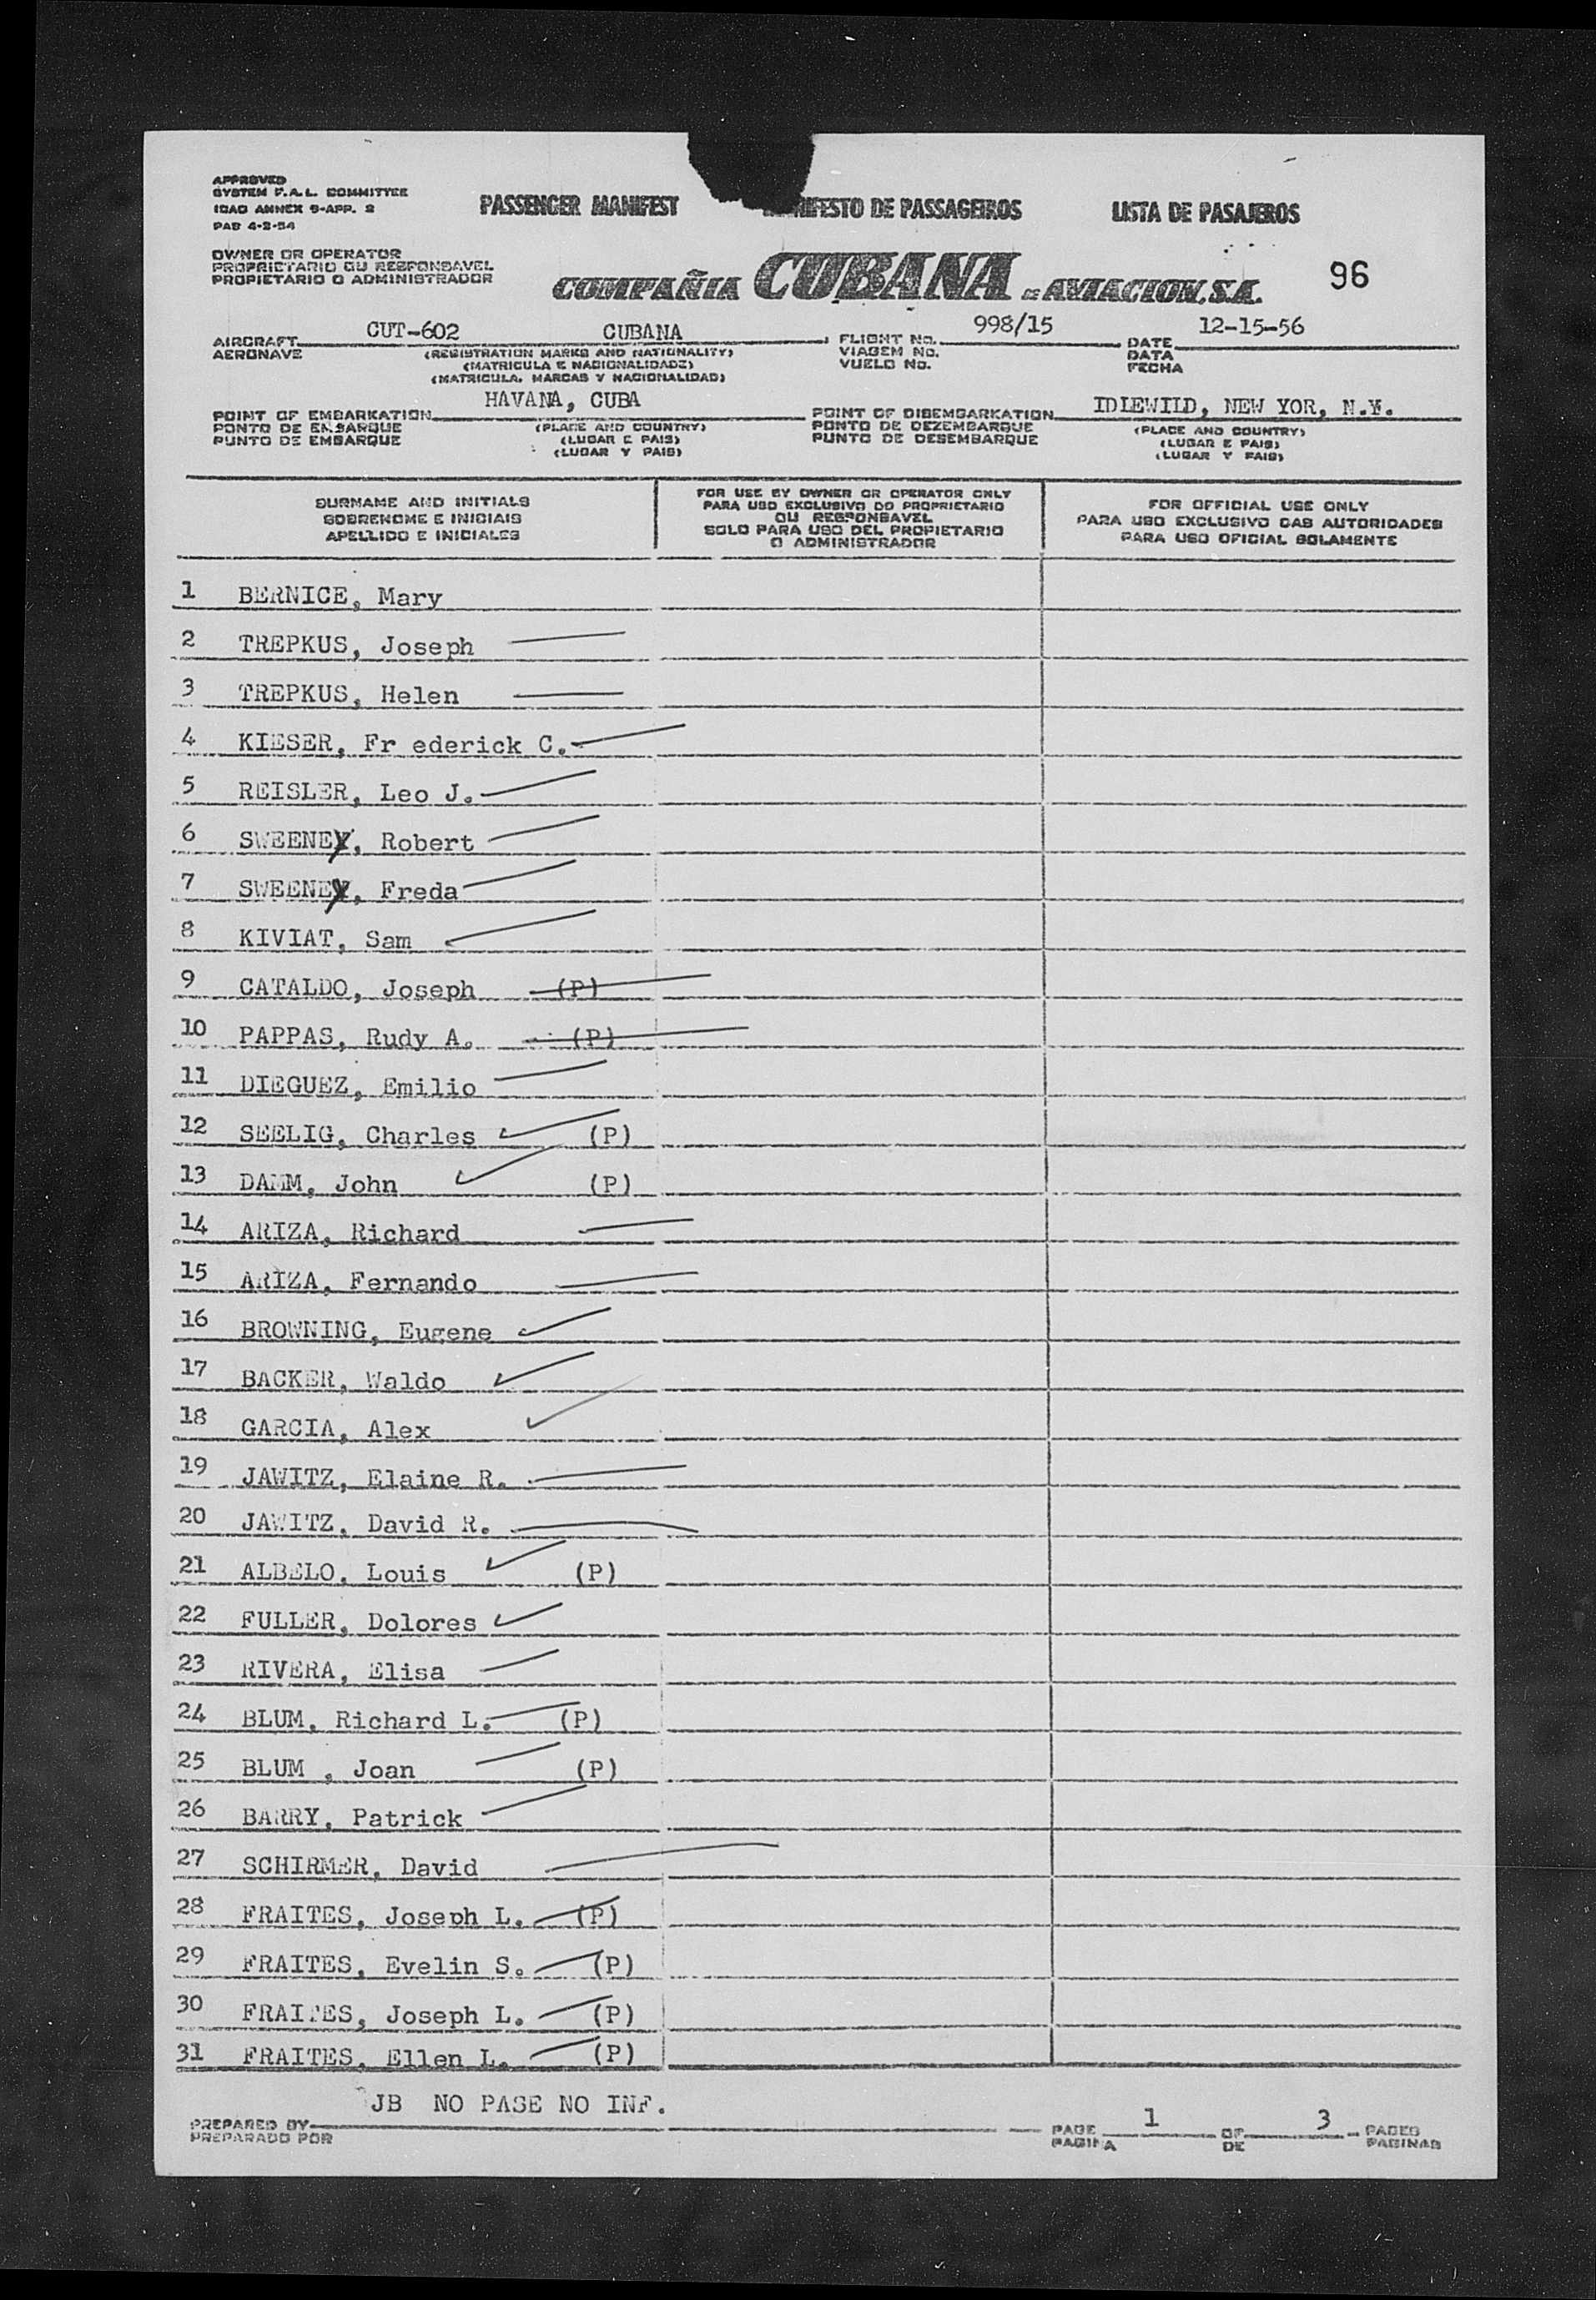 APPROVED
SYSTEM F.A.L. COMMITTEE
ICAO ANNEX 9-APP. 2
PAD 4-2-54
PASSENGER MANIFEST MANIFESTO DE PASSAGEIROS LISTA DE PASAJEROS
OWNER OR OPERATOR
PROPRIETARIO OU RESPONSAVEL
PROPIETARIO O ADMINISTRADOR
COMPAÑIA CUBANA DE AVIACION, S.A. 96
AIRCRAFT CUT-602 CUBANA FLIGHT No. 998/15 DATE 12-15-56
AERONAVE (REGISTRATION MARKS AND NATIONALITY) VIAGEM No. DATA
(MATRICULA E NACIONALIDADE) VUELO No. FECHA
(MATRICULA, MARCAS Y NACIONALIDAD)
POINT OF EMBARKATION HAVANA, CUBA POINT OF DISEMBARKATION IDLEWILD, NEW YOR, N.Y.
PONTO DE EMBARQUE (PLACE AND COUNTRY) PONTO DE DEZEMBARQUE (PLACE AND COUNTRY)
PUNTO DE EMBARQUE (LUGAR E PAIS) PUNTO DE DESEMBARQUE (LUGAR E PAIS)
(LUGAR Y PAIS) (LUGAR Y PAIS)
SURNAME AND INITIALS
SOBRENOME E INICIAIS
APELLIDO E INICIALES
FOR USE BY OWNER OR OPERATOR ONLY
PARA USO EXCLUSIVO DO PROPRIETARIO
OU RESPONSAVEL
SOLO PARA USO DEL PROPIETARIO
O ADMINISTRADOR
FOR OFFICIAL USE ONLY
PARA USO EXCLUSIVO DAS AUTORIDADES
PARA USO OFICIAL SOLAMENTE
1 BERNICE, Mary
2 TREPKUS, Joseph
3 TREPKUS, Helen
4 KIESER, Fr ederick C.
5 REISLER, Leo J.
6 SWEENEY, Robert
7 SWEENEY, Freda
8 KIVIAT, Sam
9 CATALDO, Joseph (P)
10 PAPPAS, Rudy A. (P)
11 DIEGUEZ, Emilio
12 SEELIG, Charles (P)
13 DAMM, John (P)
14 ARIZA, Richard
15 ARIZA, Fernando
16 BROWNING, Eugene
17 BACKER, Waldo
18 GARCIA, Alex
19 JAWITZ, Elaine R.
20 JAWITZ, David R.
21 ALBELO, Louis (P)
22 FULLER, Dolores
23 RIVERA, Elisa
24 BLUM, Richard L. (P)
25 BLUM , Joan (P)
26 BARRY, Patrick
27 SCHIRMER, David
28 FRAITES, Joseph L. (P)
29 FRAITES, Evelin S. (P)
30 FRAITES, Joseph L. (P)
31 FRAITES, Ellen L. (P)
JB NO PASE NO INF.
PREPARED BY PAGE 1 OF 3 PAGES
PREPARADO POR PAGINA DE PAGINAS